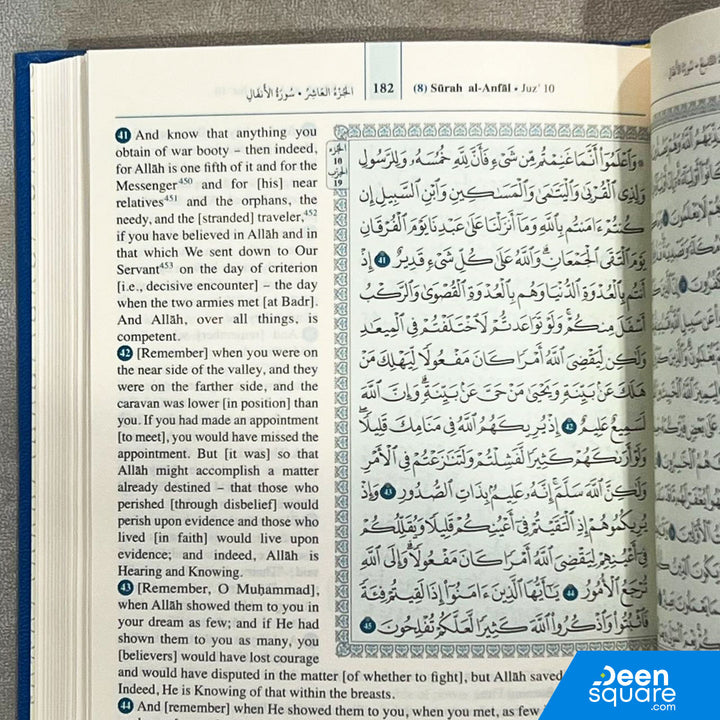 الجزء العاشر • سورة الأنفال 182 (8) Sūrah al-Anfāl • Juz’ 10
41 And know that anything you
obtain of war booty – then indeed,
for Allāh is one fifth of it and for the
Messenger450 and for [his] near
relatives451 and the orphans, the
needy, and the [stranded] traveler,452
if you have believed in Allāh and in
that which We sent down to Our
Servant453 on the day of criterion
[i.e., decisive encounter] – the day
when the two armies met [at Badr].
And Allāh, over all things, is
competent.
42 [Remember] when you were on
the near side of the valley, and they
were on the farther side, and the
caravan was lower [in position] than
you. If you had made an appointment
[to meet], you would have missed the
appointment. But [it was] so that
Allāh might accomplish a matter
already destined – that those who
perished [through disbelief] would
perish upon evidence and those who
lived [in faith] would live upon
evidence; and indeed, Allāh is
Hearing and Knowing.
43 [Remember, O Muḥammad],
when Allāh showed them to you in
your dream as few; and if He had
shown them to you as many, you
[believers] would have lost courage
and would have disputed in the matter [of whether to fight], but Allāh saved
Indeed, He is Knowing of that within the breasts.
44 And [remember] when He showed them to you, when you met, as few
الجزء
10
الحزب
19
۞ وَٱعْلَمُوٓا۟ أَنَّمَا غَنِمْتُم مِّن شَىْءٍ فَأَنَّ لِلَّهِ خُمُسَهُۥ وَلِلرَّسُولِ
وَلِذِى ٱلْقُرْبَىٰ وَٱلْيَتَـٰمَىٰ وَٱلْمَسَـٰكِينِ وَٱبْنِ ٱلسَّبِيلِ إِن
كُنتُمْ ءَامَنتُم بِٱللَّهِ وَمَآ أَنزَلْنَا عَلَىٰ عَبْدِنَا يَوْمَ ٱلْفُرْقَانِ
يَوْمَ ٱلْتَقَى ٱلْجَمْعَانِ ۗ وَٱللَّهُ عَلَىٰ كُلِّ شَىْءٍ قَدِيرٌ 41 إِذْ
أَنتُم بِٱلْعُدْوَةِ ٱلدُّنْيَا وَهُم بِٱلْعُدْوَةِ ٱلْقُصْوَىٰ وَٱلرَّكْبُ
أَسْفَلَ مِنكُمْ ۚ وَلَوْ تَوَاعَدتُّمْ لَٱخْتَلَفْتُمْ فِى ٱلْمِيعَـٰدِ ۙ
وَلَـٰكِن لِّيَقْضِىَ ٱللَّهُ أَمْرًا كَانَ مَفْعُولًا لِّيَهْلِكَ مَنْ
هَلَكَ عَنۢ بَيِّنَةٍ وَيَحْيَىٰ مَنْ حَىَّ عَنۢ بَيِّنَةٍ ۗ وَإِنَّ ٱللَّهَ
لَسَمِيعٌ عَلِيمٌ 42 إِذْ يُرِيكَهُمُ ٱللَّهُ فِى مَنَامِكَ قَلِيلًا ۖ
وَلَوْ أَرَىٰكَهُمْ كَثِيرًا لَّفَشِلْتُمْ وَلَتَنَـٰزَعْتُمْ فِى ٱلْأَمْرِ
وَلَـٰكِنَّ ٱللَّهَ سَلَّمَ ۗ إِنَّهُۥ عَلِيمٌۢ بِذَاتِ ٱلصُّدُورِ 43 وَإِذْ
يُرِيكُمُوهُمْ إِذِ ٱلْتَقَيْتُمْ فِىٓ أَعْيُنِكُمْ قَلِيلًا وَيُقَلِّلُكُمْ
فِىٓ أَعْيُنِهِمْ لِيَقْضِىَ ٱللَّهُ أَمْرًا كَانَ مَفْعُولًا ۗ وَإِلَى ٱللَّهِ
تُرْجَعُ ٱلْأُمُورُ 44 يَـٰٓأَيُّهَا ٱلَّذِينَ ءَامَنُوٓا۟ إِذَا لَقِيتُمْ فِئَةً
فَٱثْبُتُوا۟ وَٱذْكُرُوا۟ ٱللَّهَ كَثِيرًا لَّعَلَّكُمْ تُفْلِحُونَ 45
Deen
square.com